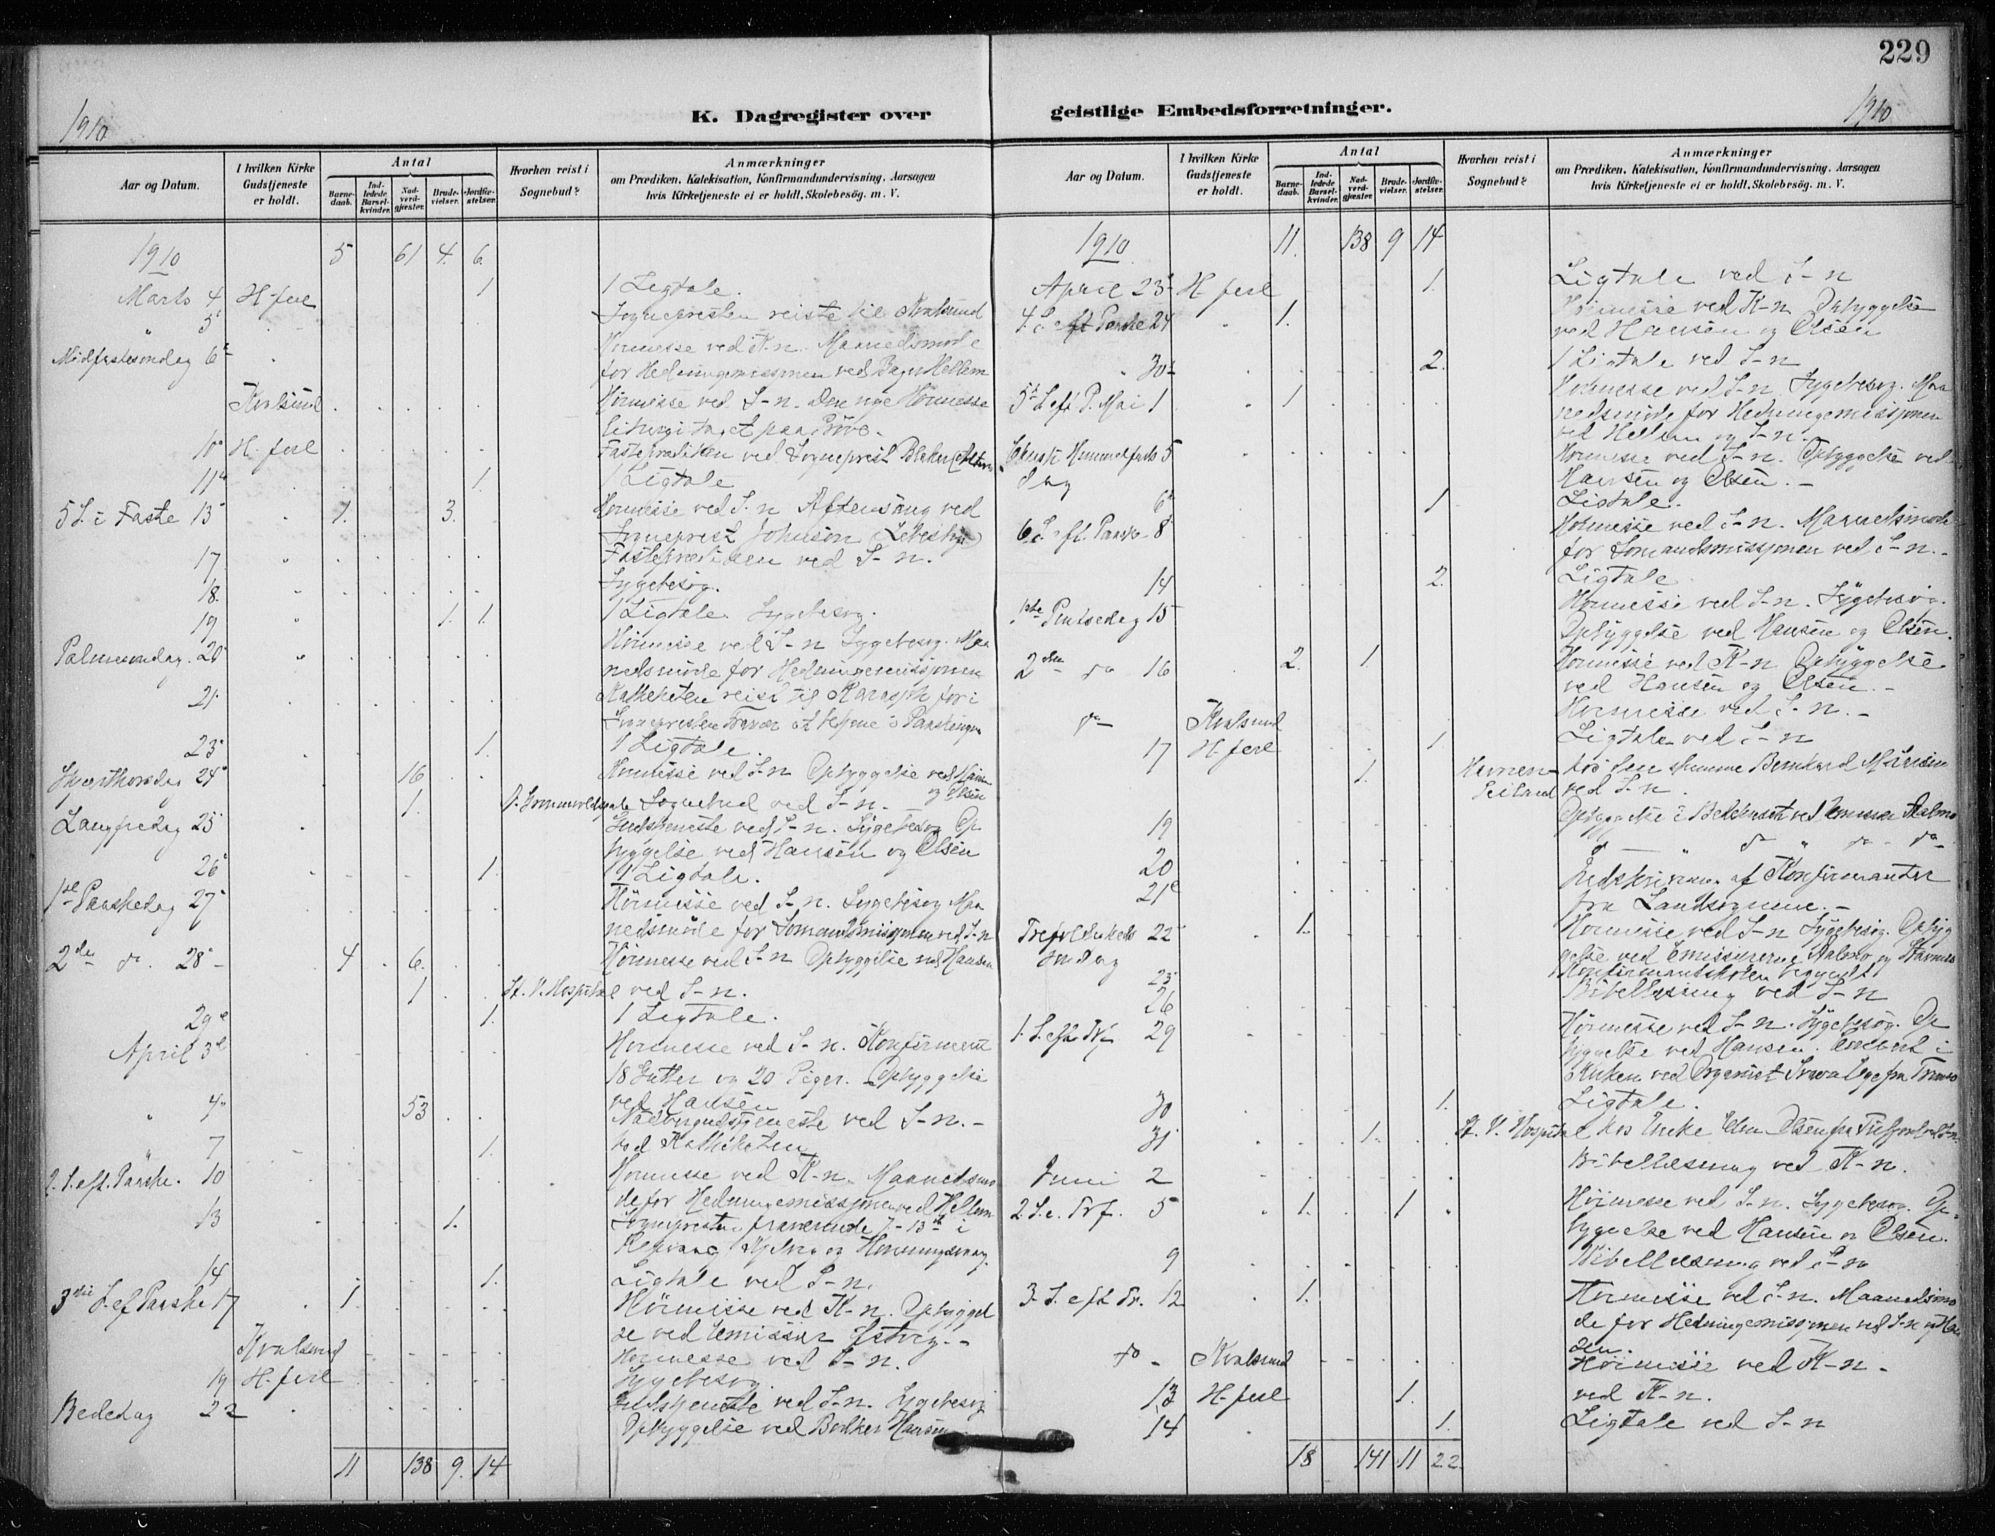 229
1910
K. Dagregister over geistlige Embedsforretninger.
1910
Aar og Datum.
I hvilken Kirke Gudstjeneste er holdt.
Antal
Barne-daab.
Ind-ledede Barsel-kvinder.
Nad-verd-gjæster.
Brude-vielser.
Jordfæ-stelser.
Hvorhen reist i Sognebud?
Anmærkninger
om Prædiken, Katekisation, Konfirmandundervisning, Aarsagen
hvis Kirketjeneste ei er holdt, Skolebesøg. m. V.
1910 5 61 4. 6.
Marts 4 H-fest 1 1 Ligtale.
" 5 Sognepresten reiste til Kvalsund
Midfastesøndag 6 Høimesse ved K-n. Maanedsmøde
for Hedningemissionen ved Hellem
Kvalsund Høimesse ved S-n. Den nye Høimesse
liturgi taget paa Prøve.
10 H-fest Fasteprædiken ved Sogneprest
11 1 1 Ligtale
5 S. i Faste 13 1. 3. Høimesse ved S-n Aftensang ved
Sogneprest Johnson Lebesby
17 " Fasteprædiken ved S-n.
18. " Sygebesøg.
19 " 1. 1. 1 Ligtale. Sygebesøg.
Palmesøndag. 20 " Høimesse ved S-n Sygebesøg. Maa
nedsmøde for Hedningemissionen
21. Katheketen reist til Karasjok for i
Sognepresten at hjelpe i Paasken
23 1. 1 Ligtale.
Skjærthorsdag 24 16 Høimesse ved S-n Opbyggelse ved Hansen
og Olsen
1. Sognebud ved S-n.
Langfredag 25 Gudstjeneste ved S-n. Sygebesøg Op
byggelse ved Hansen og Olsen
26 1. 1 Ligtale.
1ste Paaskedag 27 Høimesse ved S-n. Sygebesøg Maa
nedsmøde for Sømandsmissionen ved S-n
2den do. 28 4 6. Høimesse ved S-n Opbyggelse ved Hansen
1 St. V. Hospital ved S-n.
29 1. 1 Ligtale.
April 3 Høimesse ved S-n. Konfirmeret
18 Gutter og 20 Piger. Opbyggelse
ved Hansen
" 4 53 Nadvergudstjeneste ved S-n.
" 7 1. ved Katheketen
2. S. eft. Paaske. 10 Høimesse ved K-n. Maanedsmø
de for Hedningemissionen ved Hellem
13 1. Sognepresten fraværende 7-13 i
Repvaag, Kjelvik og Honningsvaag.
14 1. Ligtale ved S-n.
3die S. ef Paaske 17 1. Høimesse ved K-n. Opbyggel
se ved Emissær
Kvalsund Høimesse ved S-n.
19 H-fest Sygebesøg
Bededag 22 Gudstjeneste ved S-n. Sygebesøg
Opbyggelse ved Hansen
11 138 9. 14
Aar og Datum.
I hvilken Kirke Gudstjeneste er holdt.
Antal
Barne-daab.
Ind-ledede Barsel-kvinder.
Nad-verd-gjæster.
Brude-vielser.
Jordfæ-stelser.
Hvorhen reist i Sognebud?
Anmærkninger
om Prædiken, Katekisation, Konfirmandundervisning, Aarsagen
hvis Kirketjeneste ei er holdt, Skolebesøg. m. V.
1910 11. 138 9 14
April 23 H-fest 1. Ligtale ved S-n
4 S. eft Paaske 24 " 1. Høimesse ved K-n Opbyggelse
ved Hansen og Olsen
" 30 2. 1 Ligtale ved S-n
5te S. eft P. Mai 1 1 Høimesse ved S-n. Sygebesøg. Maa
nedsmøde for Hedningemissionen
ved Hellem og S-n.
Himmelfarts 5 Høimesse ved S-n. Opbyggelse ved
dag Hansen og Olsen.
6 1 Ligtale.
6 S. eft. Paaske 8 Høimesse ved S-n. Maanedsmøde
for Sømandsmissionen ved S-n.
14 2. Ligtale
1ste Pintsedag 15 Høimesse ved S-n. Sygebesøg.
Opbyggelse ved Hansen og Olsen.
2den do 16 2. 1 Høimesse ved K-n Opbyggelse
ved Hansen og Olsen.
do Kvalsund Høimesse ved S-n.
17 H-fest 1 Ligtale ved S-n
1. Seiland hos Bernhard
ved S-n.
19 Opbyggelse i Bedehuset ved Emissær
20 do do do
21 Indskrivning af Konfirmanter
fra Landsognene.
Trefoldigheds 22 1. Høimesse ved S-n Sygebesøg. Opbyg
Søndag gelse ved Emissærerne og
25 Konfirmantskolen begyndt
26 Bibellæsning ved S-n
1. S. eft. Trf 29 Høimesse ved S-n. Sygebesøg. Op
byggelse ved Hansen. Concert i
Kirken ved Organist fra Tromsø
30 1. Ligtale.
31 1. St. V. Hospital hos Enke Olsen fra
Juni 2 Bibellæsning ved K-n.
2. S. e. Trf. 5 1. 1 Høimesse ved S-n. Sygebesøg. Op
byggelse ved Hansen og Olsen.
9 Bibellæsning ved S-n
3. S. eft Tr. 12 1. Høimesse ved S-n. Maanedsmø
de for Hedningemissionen ved S-n og Han
sen.
do - Kvalsund Høimesse ved K-n.
13 H-fest 1. ved K-n.
14 1. Ligtale ved S-n
18 141 11 22.